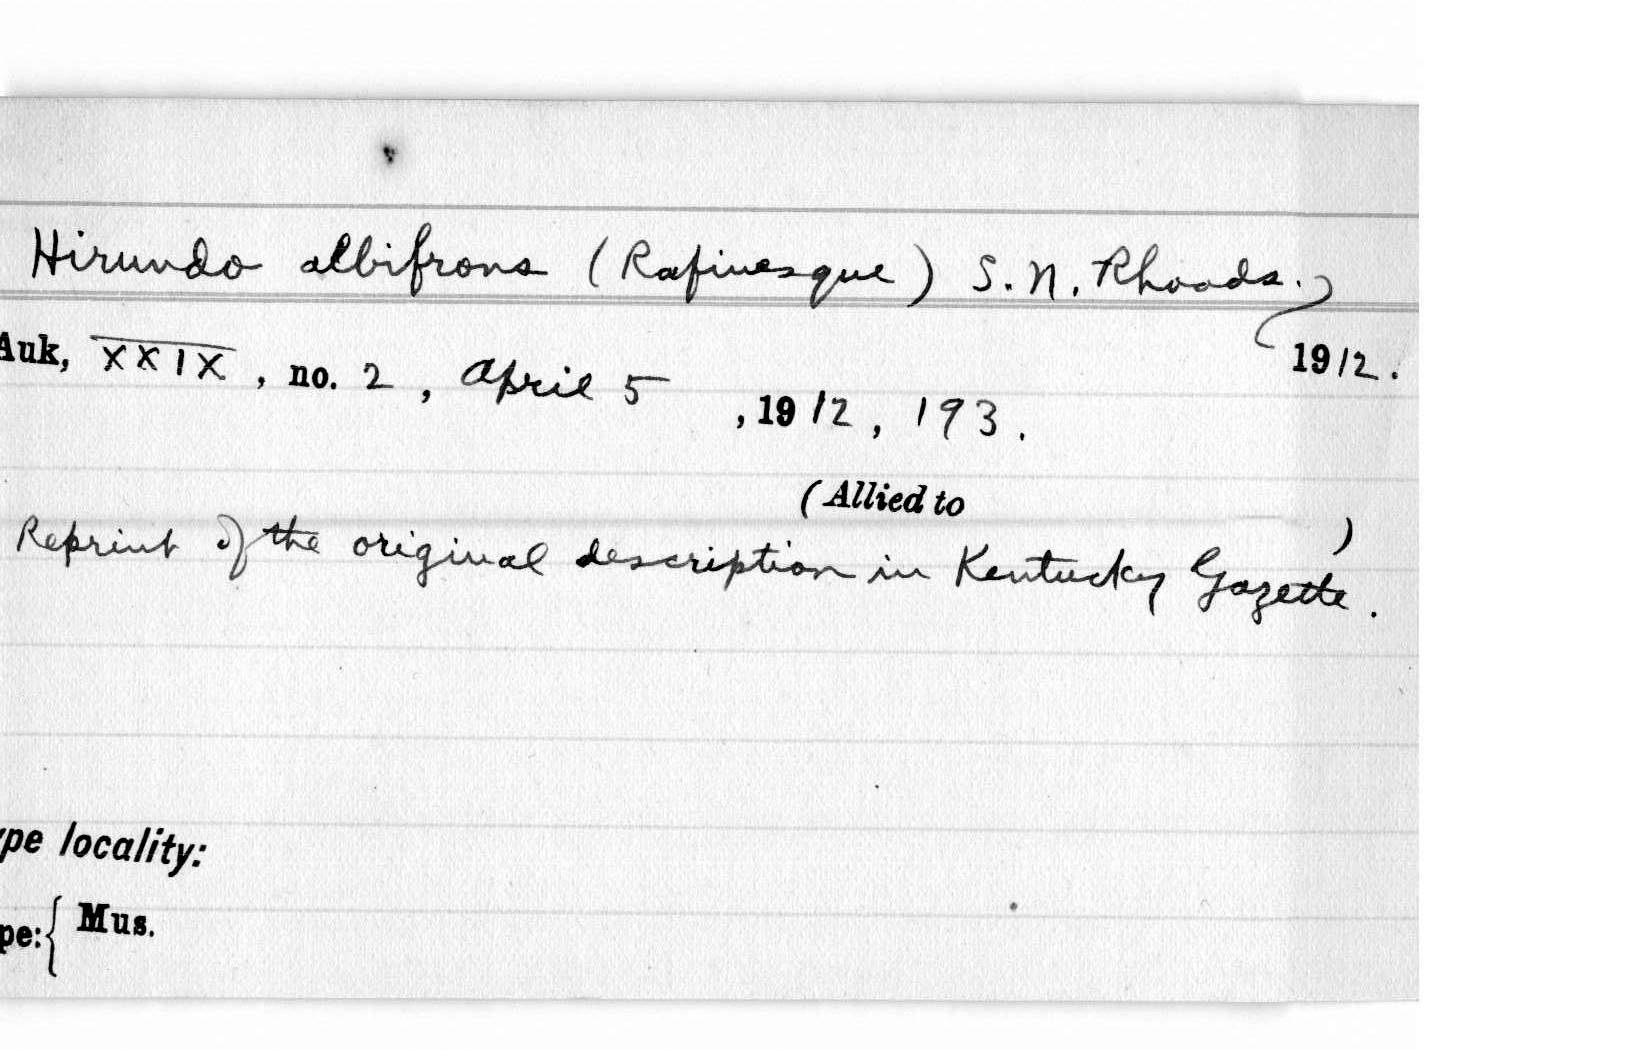 Hirundo albifrons (Rafinesque) S. N. Rhoads.,
1912.
Auk, XXIX, no. 2, April 5, 1912, 193.
(Allied to )
Reprint of the original description in Kentucky Gazette.
ype locality:
pe: { Mus.